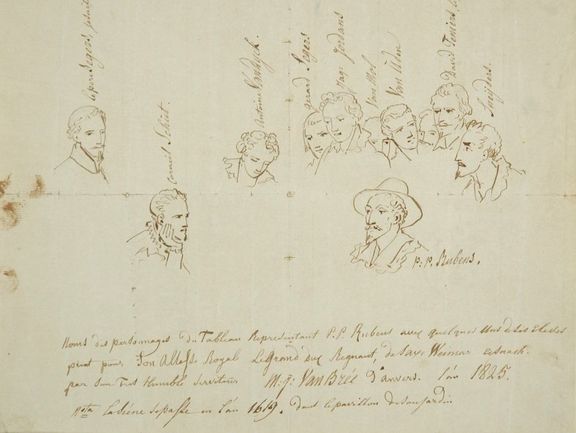 le pere Segers, jesuite
Corneil Schut.
Antoine Vandyck.
Gerard Segers
Jaq: Jordans
Van Mol
Van Uden
David Teniers
Snyders.
P: P. Rubens.
Noms des personnages du Tableau Representant P. P. Rubens avec quelques Uns de Ses Eleves
peint pour Son Altesse Royal Le Grand duc Regnant, de Saxe Weimar Eisnach.
par Son Tres Humble Serviteur M: J: Van Brée d'anvers. l'an 1825.
Nota la Scene Se passe en l'an 1619. dans le pavillon de Son jardin